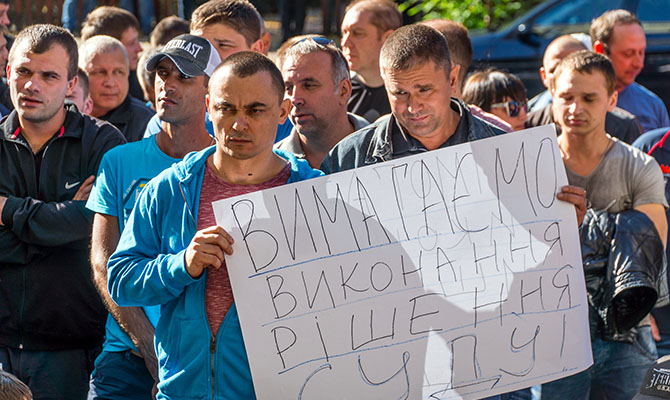 EVERLAST
ВИМАГАЄМО
ВИКОНАННЯ
РІШЕННЯ
СУДУ!